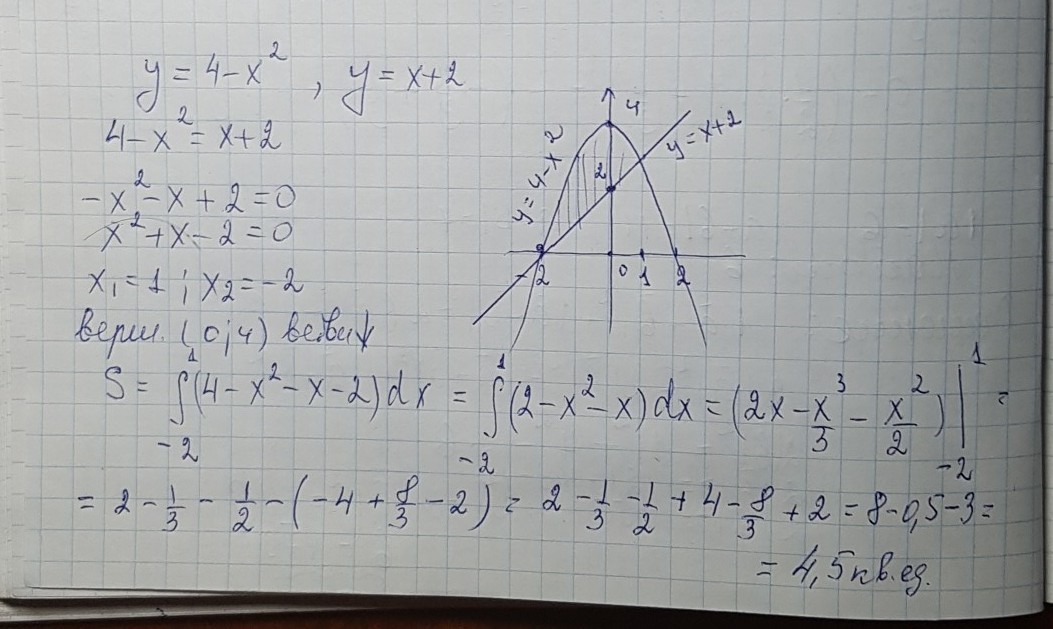 y = 4 - x² , y = x + 2
4 - x² = x + 2
- x² - x + 2 = 0
x² + x - 2 = 0
x₁ = 1 ; x₂ = -2
верш. (0;4) ветви ↓
4
y = 4 - x²
y = x + 2
2
-2
0 1 2
S = ∫₋₂¹ (4 - x² - x - 2) dx = ∫₋₂¹ (2 - x² - x) dx = (2x - x³/3 - x²/2) |₋₂¹ =
= 2 - 1/3 - 1/2 - (-4 + 8/3 - 2) = 2 - 1/3 - 1/2 + 4 - 8/3 + 2 = 8 - 0,5 - 3 =
= 4,5 кв.ед.